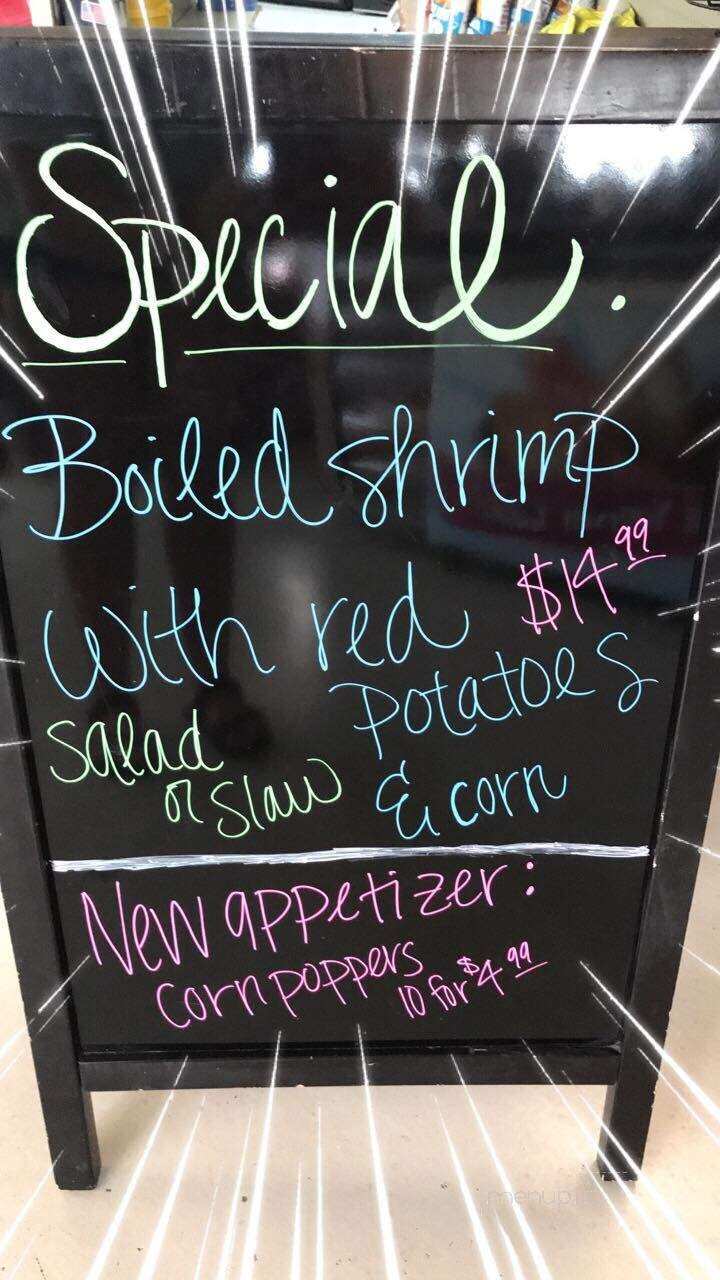 Special.
Boiled shrimp
with red $14.99
potatoes
salad
or slaw & corn
New appetizer:
corn poppers
10 for $4.99
menupix